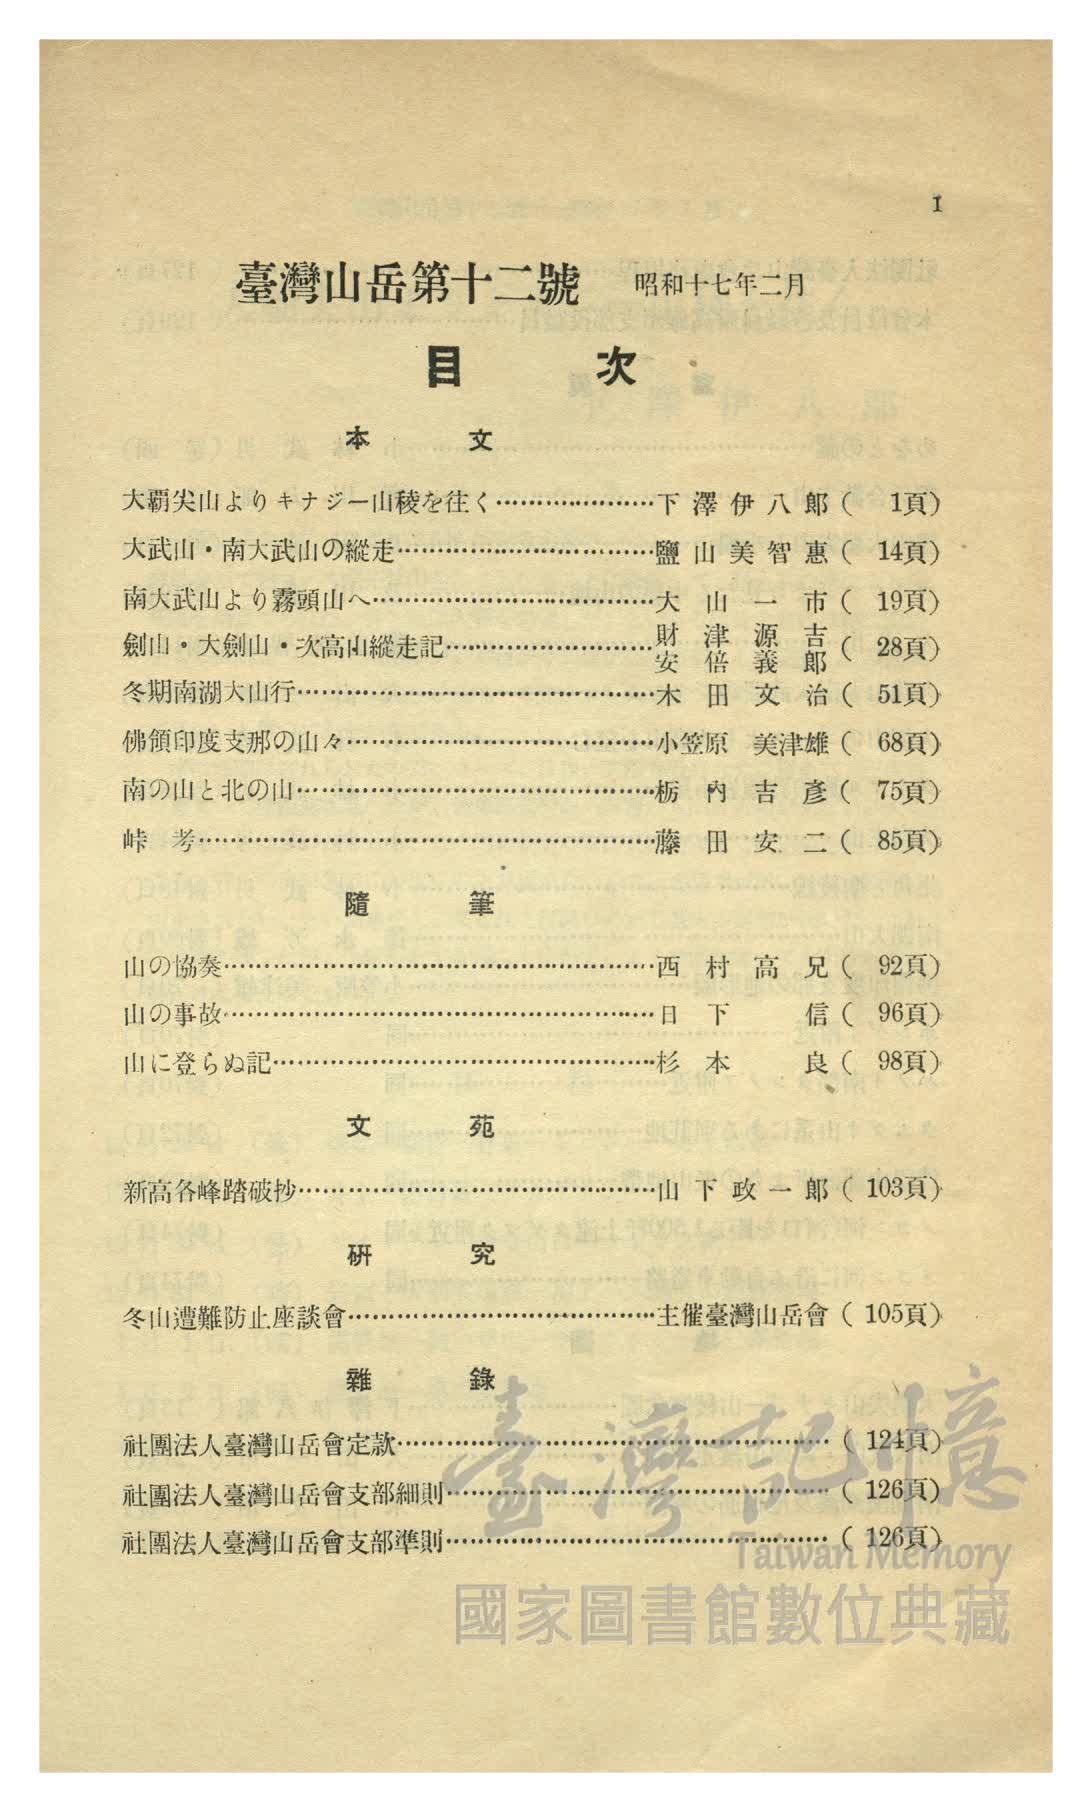 I
臺灣山岳第十二號 昭和十七年二月
目次
本文
大覇尖山よりキナジー山稜を往く……………………下澤伊八郎( 1頁)
大武山・南大武山の縱走……………………鹽山美智惠( 14頁)
南大武山より霧頭山へ……………………大山一市( 19頁)
劍山・大劍山・次高山縱走記……………………財津源吉 安倍義郎( 28頁)
冬期南湖大山行……………………木田文治( 51頁)
佛領印度支那の山々……………………小笠原 美津雄( 68頁)
南の山と北の山……………………栃内吉彥( 75頁)
峠考……………………藤田安二( 85頁)
隨筆
山の協奏……………………西村高兄( 92頁)
山の事故……………………日下信( 96頁)
山に登らぬ記……………………杉本良( 98頁)
文苑
新高各峰踏破抄……………………山下政一郎( 103頁)
硏究
冬山遭難防止座談會……………………主催臺灣山岳會( 105頁)
雜錄
社團法人臺灣山岳會定款……………………( 124頁)
社團法人臺灣山岳會支部細則……………………( 126頁)
社團法人臺灣山岳會支部準則……………………( 126頁)
臺灣記憶
Taiwan Memory
國家圖書館數位典藏